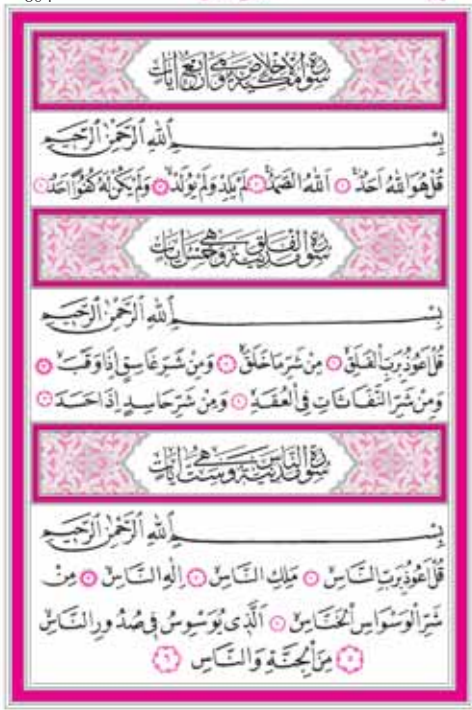 سورة الإخلاص مكية وهي أربع آيات
بِسْمِ اللّٰهِ الرَّحْمٰنِ الرَّحِيمِ
قُلْ هُوَ اللّٰهُ اَحَدٌۚ ﴿١﴾ اَللّٰهُ الصَّمَدُۚ ﴿٢﴾ لَمْ يَلِدْ وَلَمْ يُولَدْۙ ﴿٣﴾ وَلَمْ يَكُنْ لَهُ كُفُوًا اَحَدٌ ﴿٤﴾
سورة الفلق مدنية وهي خمس آيات
بِسْمِ اللّٰهِ الرَّحْمٰنِ الرَّحِيمِ
قُلْ اَعُوذُ بِرَبِّ الْفَلَقِۙ ﴿١﴾ مِنْ شَرِّ مَا خَلَقَۙ ﴿٢﴾ وَمِنْ شَرِّ غَاسِقٍ اِذَا وَقَبَۙ ﴿٣﴾
وَمِنْ شَرِّ النَّفَّاثَاتِ فِي الْعُقَدِۙ ﴿٤﴾ وَمِنْ شَرِّ حَاسِدٍ اِذَا حَسَدَ ﴿٥﴾
سورة الناس مدنية وهي ست آيات
بِسْمِ اللّٰهِ الرَّحْمٰنِ الرَّحِيمِ
قُلْ اَعُوذُ بِرَبِّ النَّاسِۙ ﴿١﴾ مَلِكِ النَّاسِۙ ﴿٢﴾ اِلٰهِ النَّاسِۙ ﴿٣﴾ مِنْ
شَرِّ الْوَسْوَاسِ الْخَنَّاسِۙ ﴿٤﴾ اَلَّذِي يُوَسْوِسُ فِي صُدُورِ النَّاسِۙ
﴿٥﴾ مِنَ الْجِنَّةِ وَالنَّاسِ ﴿٦﴾